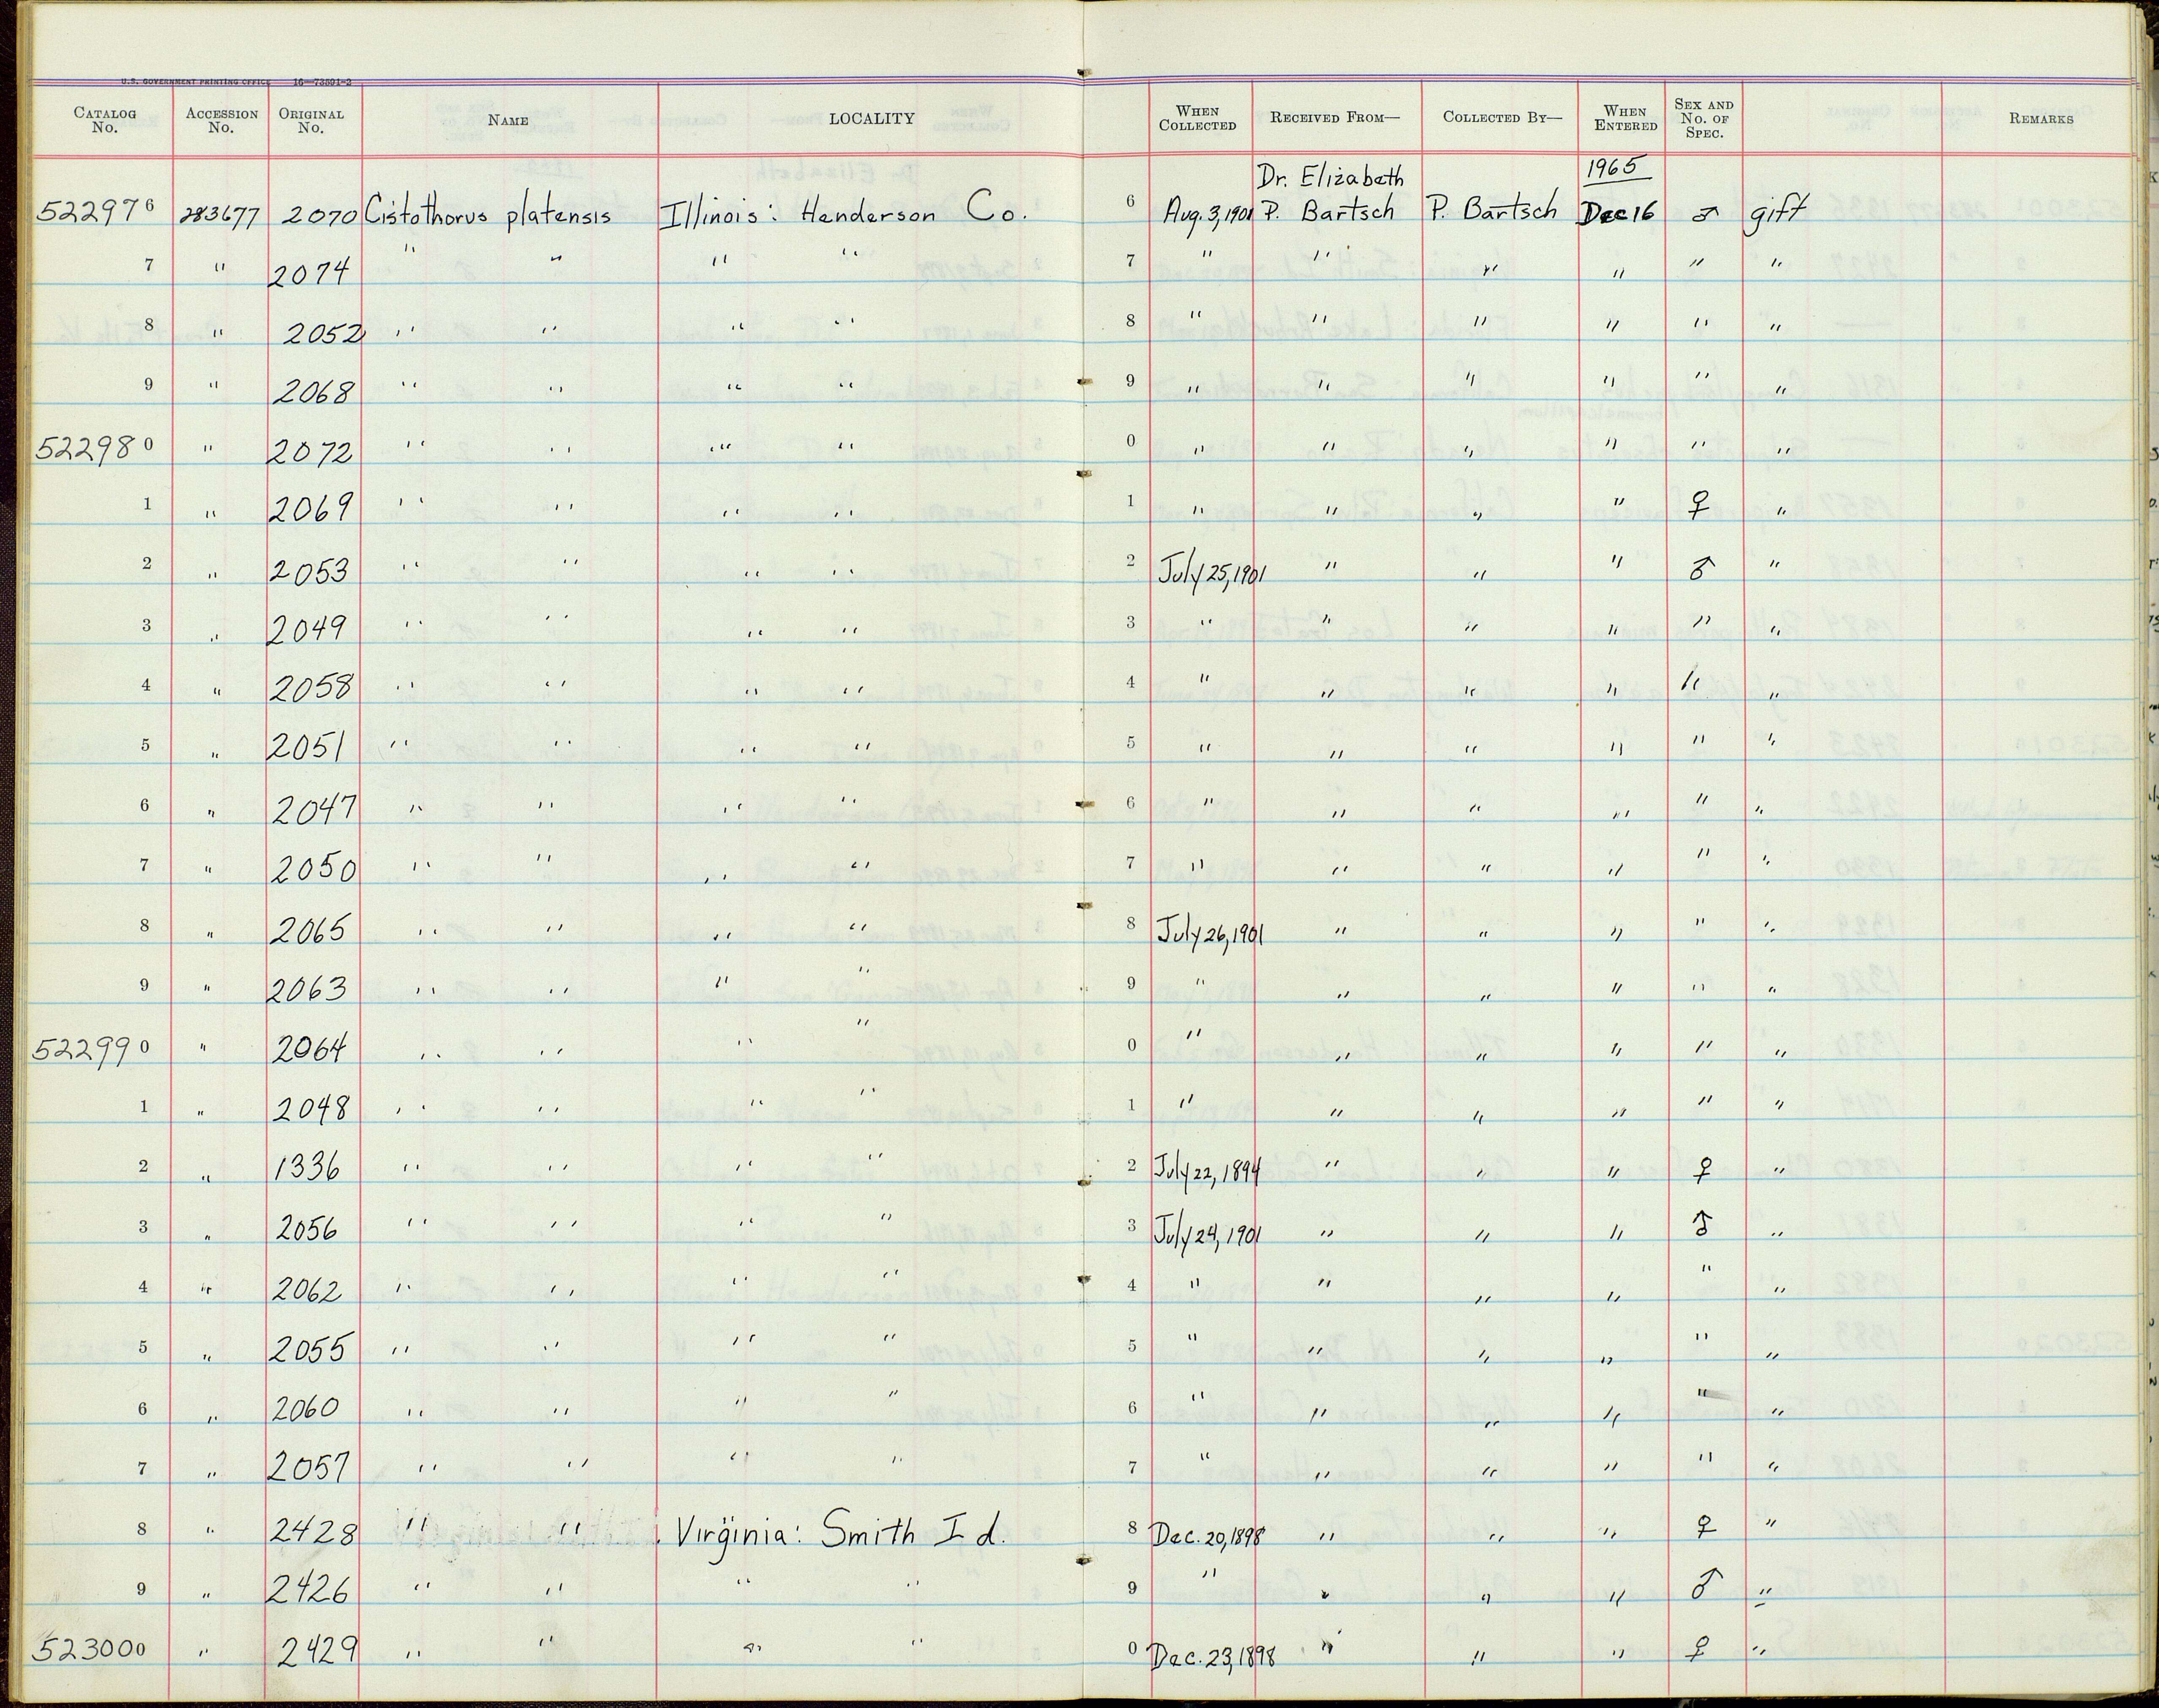 U.S. GOVERNMENT PRINTING OFFICE 16—73591-2
CATALOG No. ACCESSION No. ORIGINAL No. NAME LOCALITY WHEN COLLECTED RECEIVED FROM— COLLECTED BY— WHEN ENTERED SEX AND No. OF SPEC. REMARKS
Dr. Elizabeth 1965
522976 283677 2070 Cistothorus platensis Illinois: Henderson Co. 6 Aug. 3, 1901 P. Bartsch P. Bartsch Dec 16 ♂ gift
7 " 2074 " " " " 7 " " " " " "
8 " 2052 " " " " 8 " " " " " "
9 " 2068 " " " " 9 " " " " " "
522980 " 2072 " " " " 0 " " " " " "
1 " 2069 " " " " 1 " " " " ♀ "
2 " 2053 " " " " 2 July 25, 1901 " " " ♂ "
3 " 2049 " " " " 3 " " " " " "
4 " 2058 " " " " 4 " " " " " "
5 " 2051 " " " " 5 " " " " " "
6 " 2047 " " " " 6 " " " " " "
7 " 2050 " " " " 7 " " " " " "
8 " 2065 " " " " 8 July 26, 1901 " " " " "
9 " 2063 " " " " 9 " " " " " "
522990 " 2064 " " " " 0 " " " " " "
1 " 2048 " " " " 1 " " " " " "
2 " 1336 " " " " 2 July 22, 1894 " " " ♀ "
3 " 2056 " " " " 3 July 24, 1901 " " " ♂ "
4 " 2062 " " " " 4 " " " " " "
5 " 2055 " " " " 5 " " " " " "
6 " 2060 " " " " 6 " " " " " "
7 " 2057 " " " " 7 " " " " " "
8 " 2428 " " Virginia: Smith Id. 8 Dec. 20, 1898 " " " ♀ "
9 " 2426 " " " " 9 " " " " ♂ "
523000 " 2429 " " " " 0 Dec. 23, 1898 " " " ♀ "